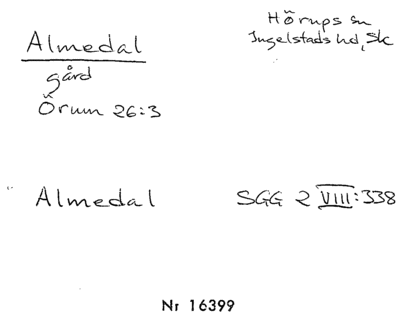 Almedal
gård
Örum 26:3
Hörups sn
Ingelstads hd, Sk
Almedal
SGG 2 VIII:338
Nr 16399